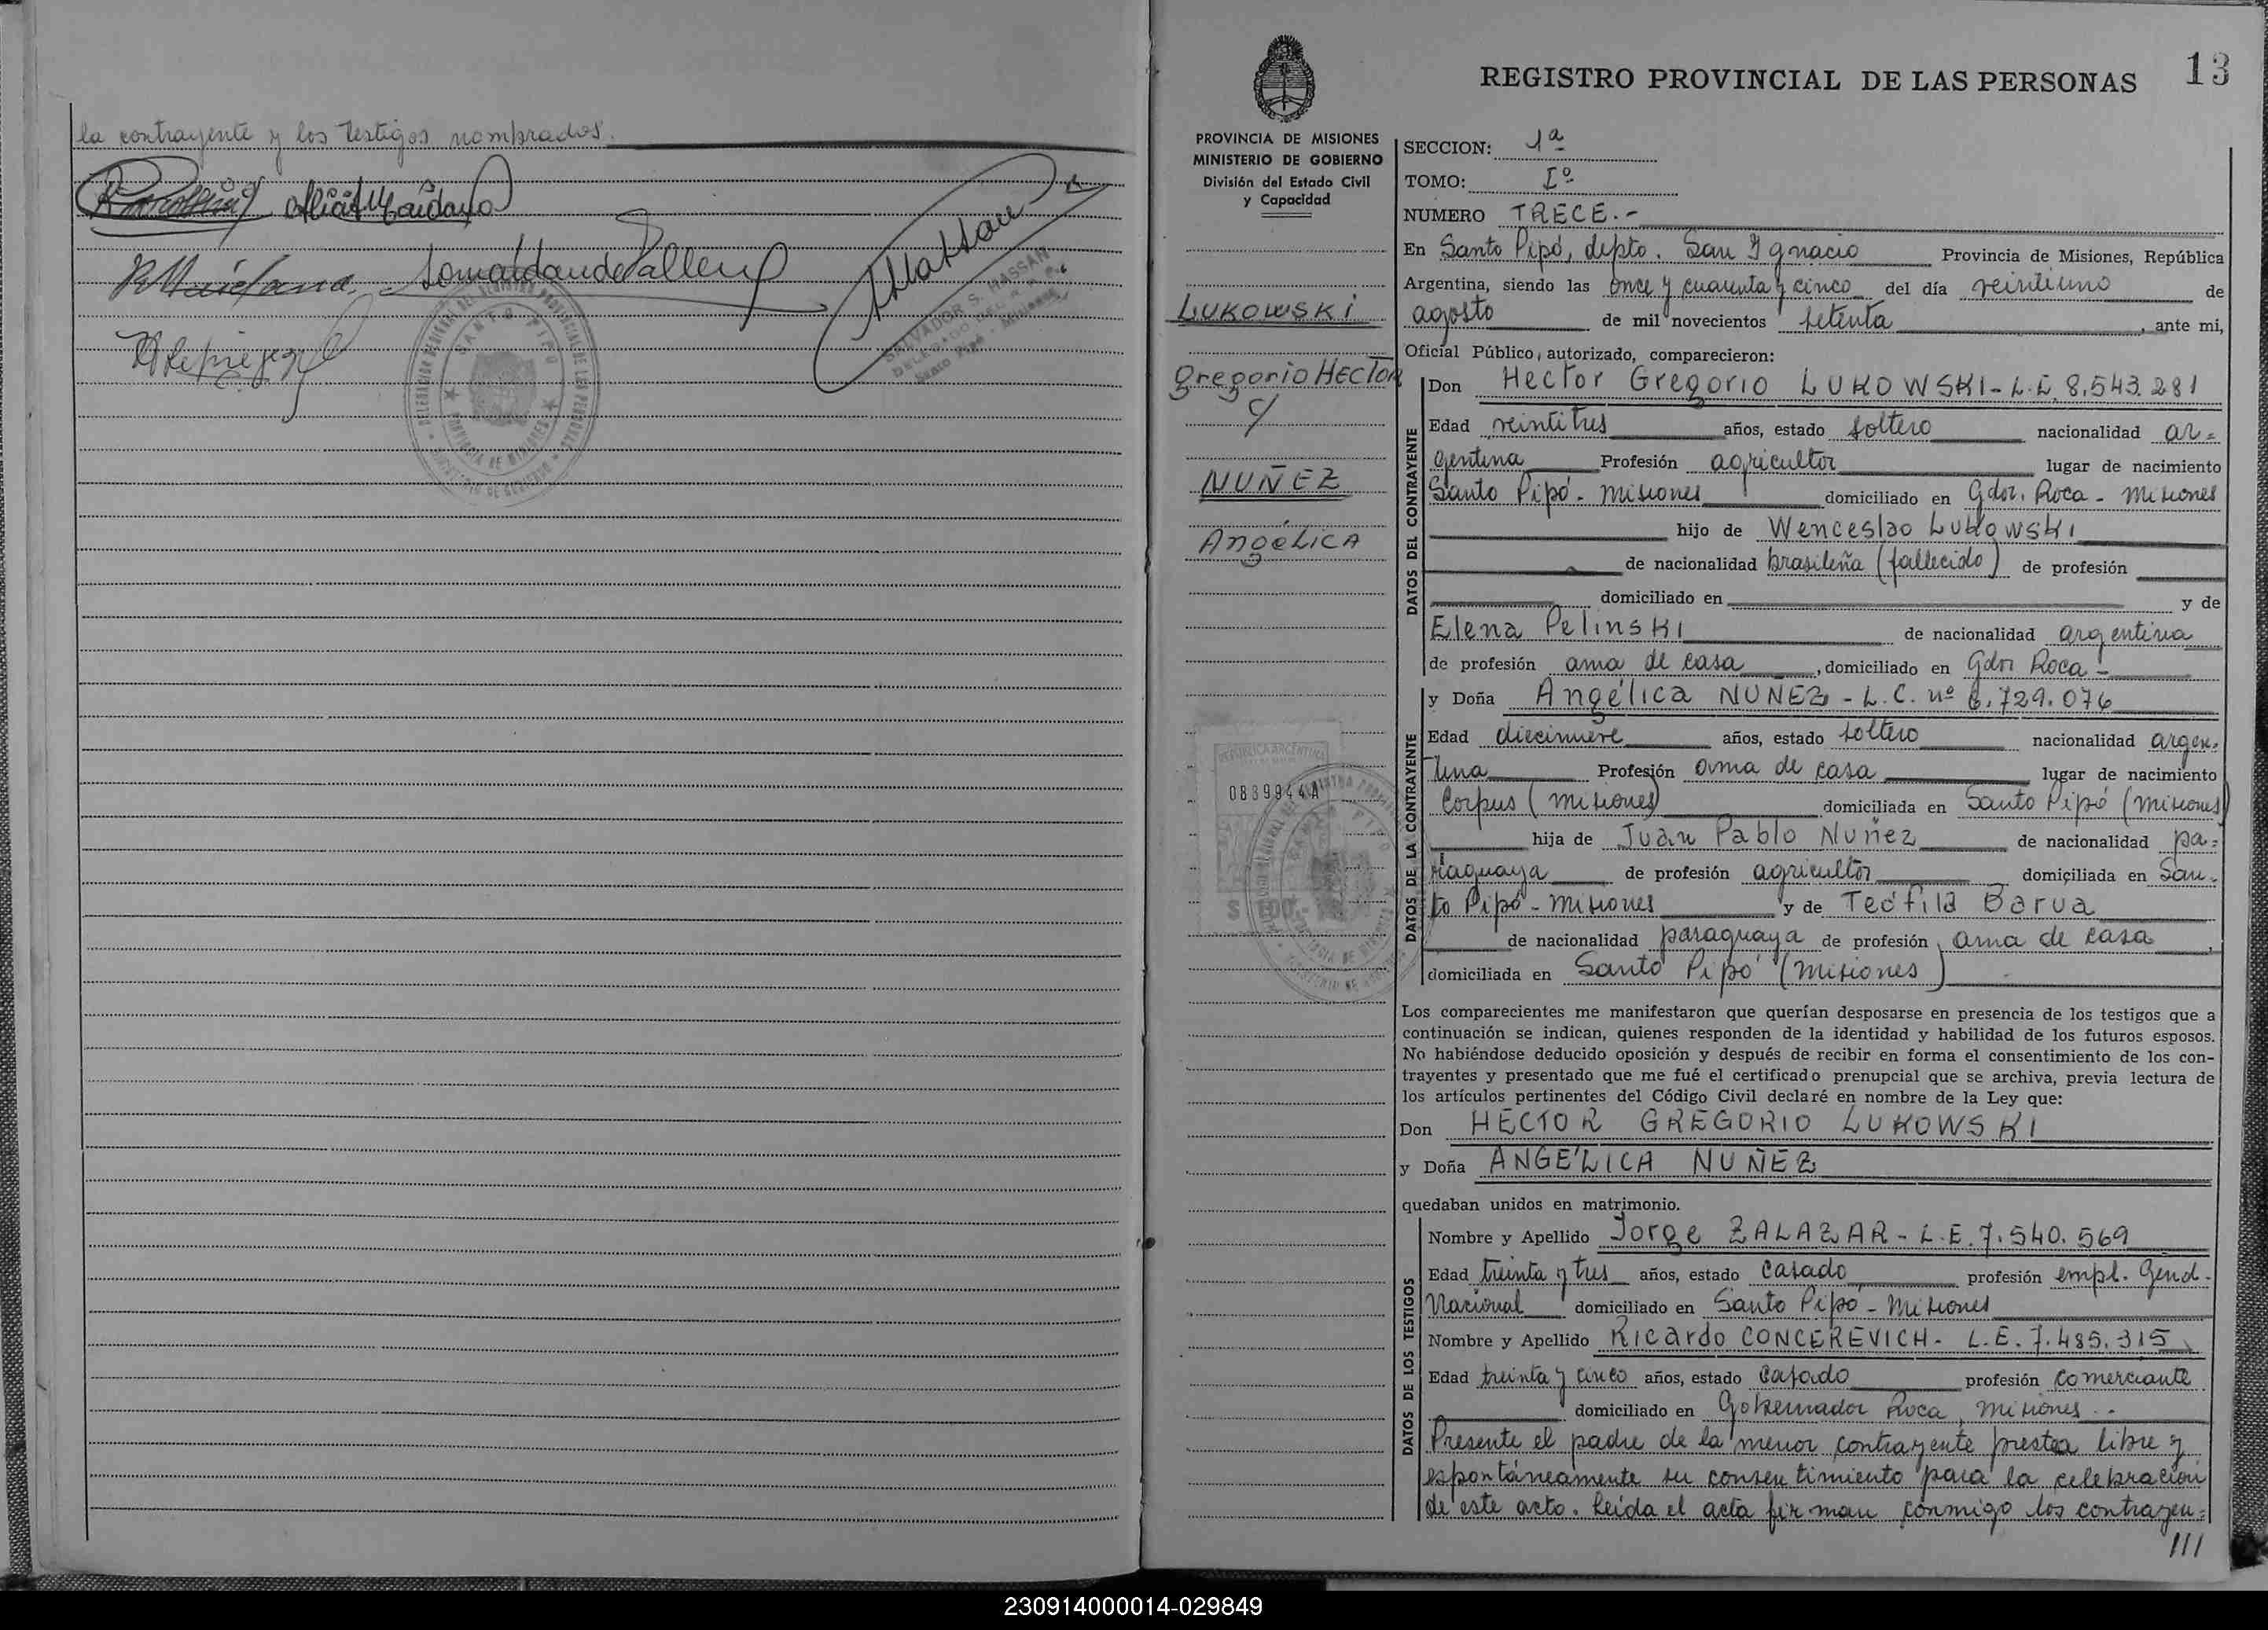 la contrayente y los testigos nombrados.
SALVADOR S. HASSAN
Santo Pipó - Misiones
SANTO PIPO
PROVINCIA DE MISIONES
REGISTRO PROVINCIAL DE LAS PERSONAS
13
PROVINCIA DE MISIONES
MINISTERIO DE GOBIERNO
División del Estado Civil
y Capacidad
LUKOWSKI
gregorio HECTOR
c/
NUÑEZ
AngéLICA
REPUBLICA ARGENTINA
0839944A
SECCION: 1ª
TOMO: Iº
NUMERO TRECE.-
En Santo Pipó, depto. San Ignacio Provincia de Misiones, República
Argentina, siendo las once y cuarenta y cinco del día veintiuno de
agosto de mil novecientos setenta, ante mi,
Oficial Público, autorizado, comparecieron:
DATOS DEL CONTRAYENTE
Don Hector Gregorio LUKOWSKI - L.E. 8.543.281
Edad veintitres años, estado soltero nacionalidad ar=
gentina Profesión agricultor lugar de nacimiento
Santo Pipó - Misiones domiciliado en Gdor. Roca - Misiones
hijo de Wenceslao Lukowski
de nacionalidad brasileña (fallecido) de profesión
domiciliado en y de
Elena Pelinski de nacionalidad argentina
de profesión ama de casa, domiciliado en Gdor Roca -
DATOS DE LA CONTRAYENTE
y Doña Angélica NUÑEZ - L.C. nº 6.729.076
Edad diecinueve años, estado soltero nacionalidad argen-
tina Profesión ama de casa lugar de nacimiento
Corpus (Misiones) domiciliada en Santo Pipó (Misiones)
hija de Juan Pablo Nuñez de nacionalidad pa=
raguaya de profesión agricultor domiciliada en San-
to Pipó - Misiones y de Teófila Barua
de nacionalidad paraguaya de profesión ama de casa,
domiciliada en Santo Pipó (Misiones)
Los comparecientes me manifestaron que querían desposarse en presencia de los testigos que a
continuación se indican, quienes responden de la identidad y habilidad de los futuros esposos.
No habiéndose deducido oposición y después de recibir en forma el consentimiento de los con-
trayentes y presentado que me fué el certificado prenupcial que se archiva, previa lectura de
los artículos pertinentes del Código Civil declaré en nombre de la Ley que:
Don HECTOR GREGORIO LUKOWSKI
y Doña ANGÉLICA NUÑEZ
quedaban unidos en matrimonio.
DATOS DE LOS TESTIGOS
Nombre y Apellido Jorge ZALAZAR - L.E. 7.540.569
Edad treinta y tres años, estado casado profesión empl. Gend.
Nacional domiciliado en Santo Pipó - Misiones
Nombre y Apellido Ricardo CONCEREVICH - L.E. 7.485.315
Edad treinta y cinco años, estado casado profesión comerciante
domiciliado en Gobernador Roca, Misiones.-
Presente el padre de la menor contrayente presta libre y
espontáneamente su consentimiento para la celebración
de este acto. Leída el acta firman conmigo los contrayen=
///
230914000014-029849